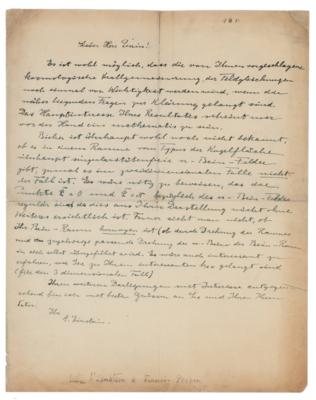 Lieber Herr
Es ist wohl möglich, dass die von Ihnen vorgeschlagene
kosmologische Verallgemeinerung der Feldgleichungen
noch einmal von Wichtigkeit werden wird, wenn die
näher liegenden Fragen zur Klärung gelangt sind.
Das Hauptinteresse Ihres Resultates scheint mir
vor der Hand ein mathematisches zu sein.
Bisher ist überhaupt wohl noch nicht bekannt,
ob es in einem Raume vom Typus der Kugelfläche
überhaupt singularitätsfreie n-Bein-Felder
gibt, zumal es im zweidimensionalen Falle nicht
der Fall ist. Es wäre nötig zu beweisen, dass das
Punkte und bezüglich des n-Bein-Feldes
regulär sind, da dies aus Ihrer Darstellung nicht ohne
Weiteres ersichtlich ist. Ferner sieht man nicht, ob
Ihr Bein-Raum homogen ist (ob durch Drehung des Raumes
und zugehörige passende Drehung der n-Beine der Bein-Raum
in sich selbst übergeführt wird. Es wäre auch interessant zu
erfahren, wie Sie zu Ihrem interessanten gelangt sind
(für den 3 dimensionalen Fall)
Ihren weiteren Darlegungen mit Interesse entgegen-
sehend bin ich mit besten Grüssen an Sie und Ihren Herrn
Vater
Ihr
A. Einstein.
Einstein a